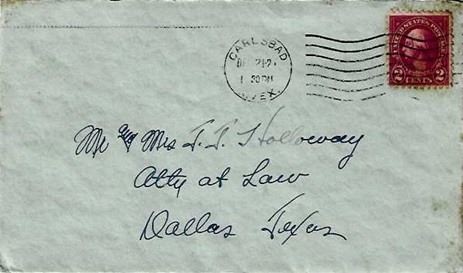 CARLSBAD
N. MEX.
UNITED STATES POSTAGE
2 CENTS 2
Mr & Mrs T. T. Holloway
Atty at Law
Dallas Texas